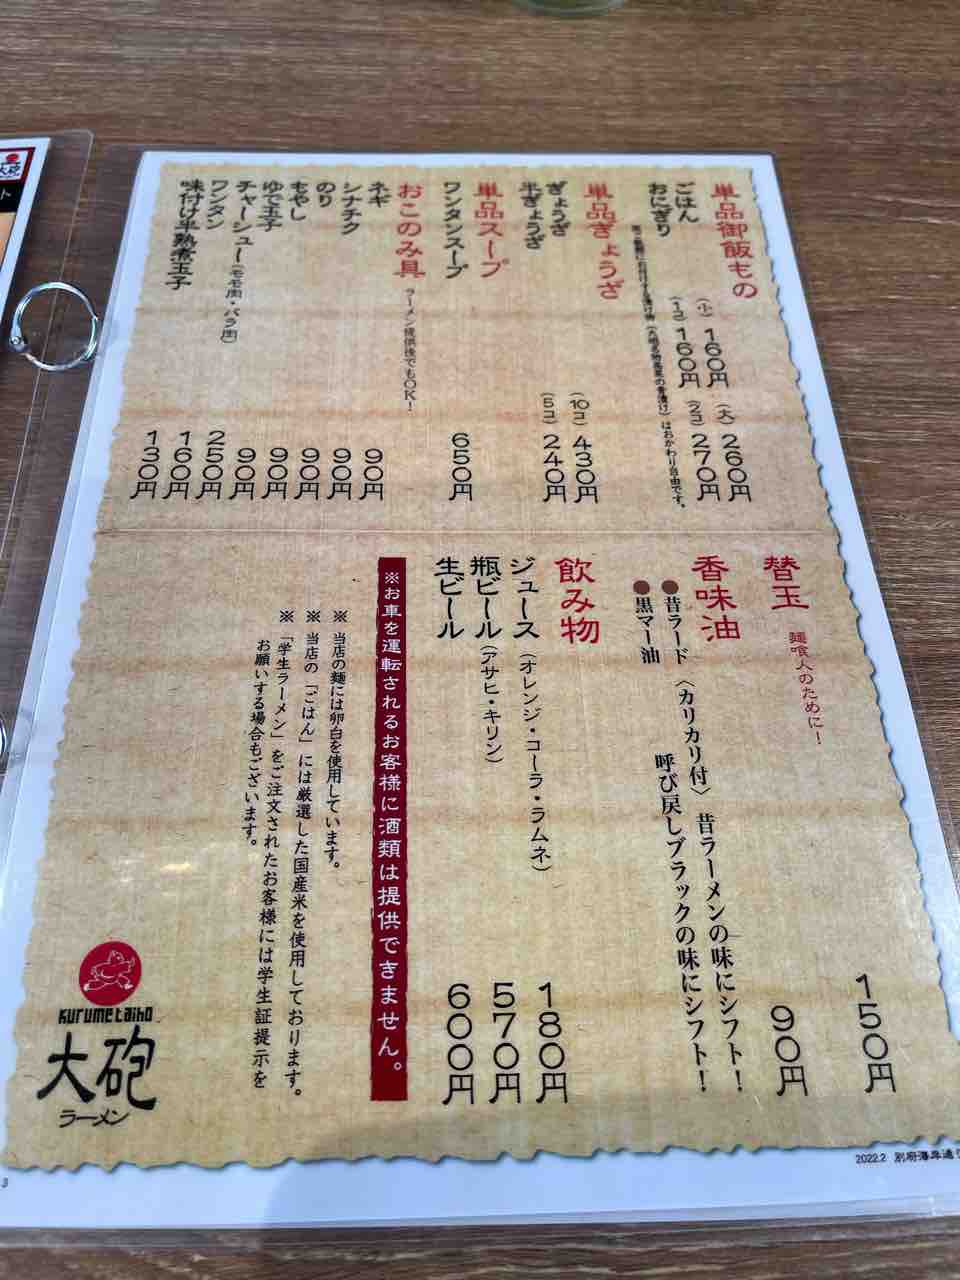 単品御飯もの
ごはん (小) 160円 (大) 260円
おにぎり (1コ) 160円 (2コ) 270円
はおかわり自由です。
単品ぎょうざ
ぎょうざ (10コ) 430円
半ぎょうざ (5コ) 240円
単品スープ
ワンタンスープ 650円
おこのみ具 ラーメン提供後でもOK!
ネギ 90円
シナチク 90円
のり 90円
もやし 90円
ゆで玉子 90円
チャーシュー(モモ肉・バラ肉) 250円
ワンタン 160円
味付け半熟煮玉子 130円
替玉 麺喰人のために! 150円
香味油 90円
●昔ラード〈カリカリ付〉昔ラーメンの味にシフト!
●黒マー油 呼び戻しブラックの味にシフト!
飲み物
ジュース(オレンジ・コーラ・ラムネ) 180円
瓶ビール(アサヒ・キリン) 570円
生ビール 600円
※お車を運転されるお客様に酒類は提供できません。
※ 当店の麺には卵白を使用しています。
※ 当店の「ごはん」には厳選した国産米を使用しております。
※「学生ラーメン」をご注文されたお客様には学生証提示を
お願いする場合もございます。
KURUME TAIHO
大砲
ラーメン
2022.2
3
大砲
ト